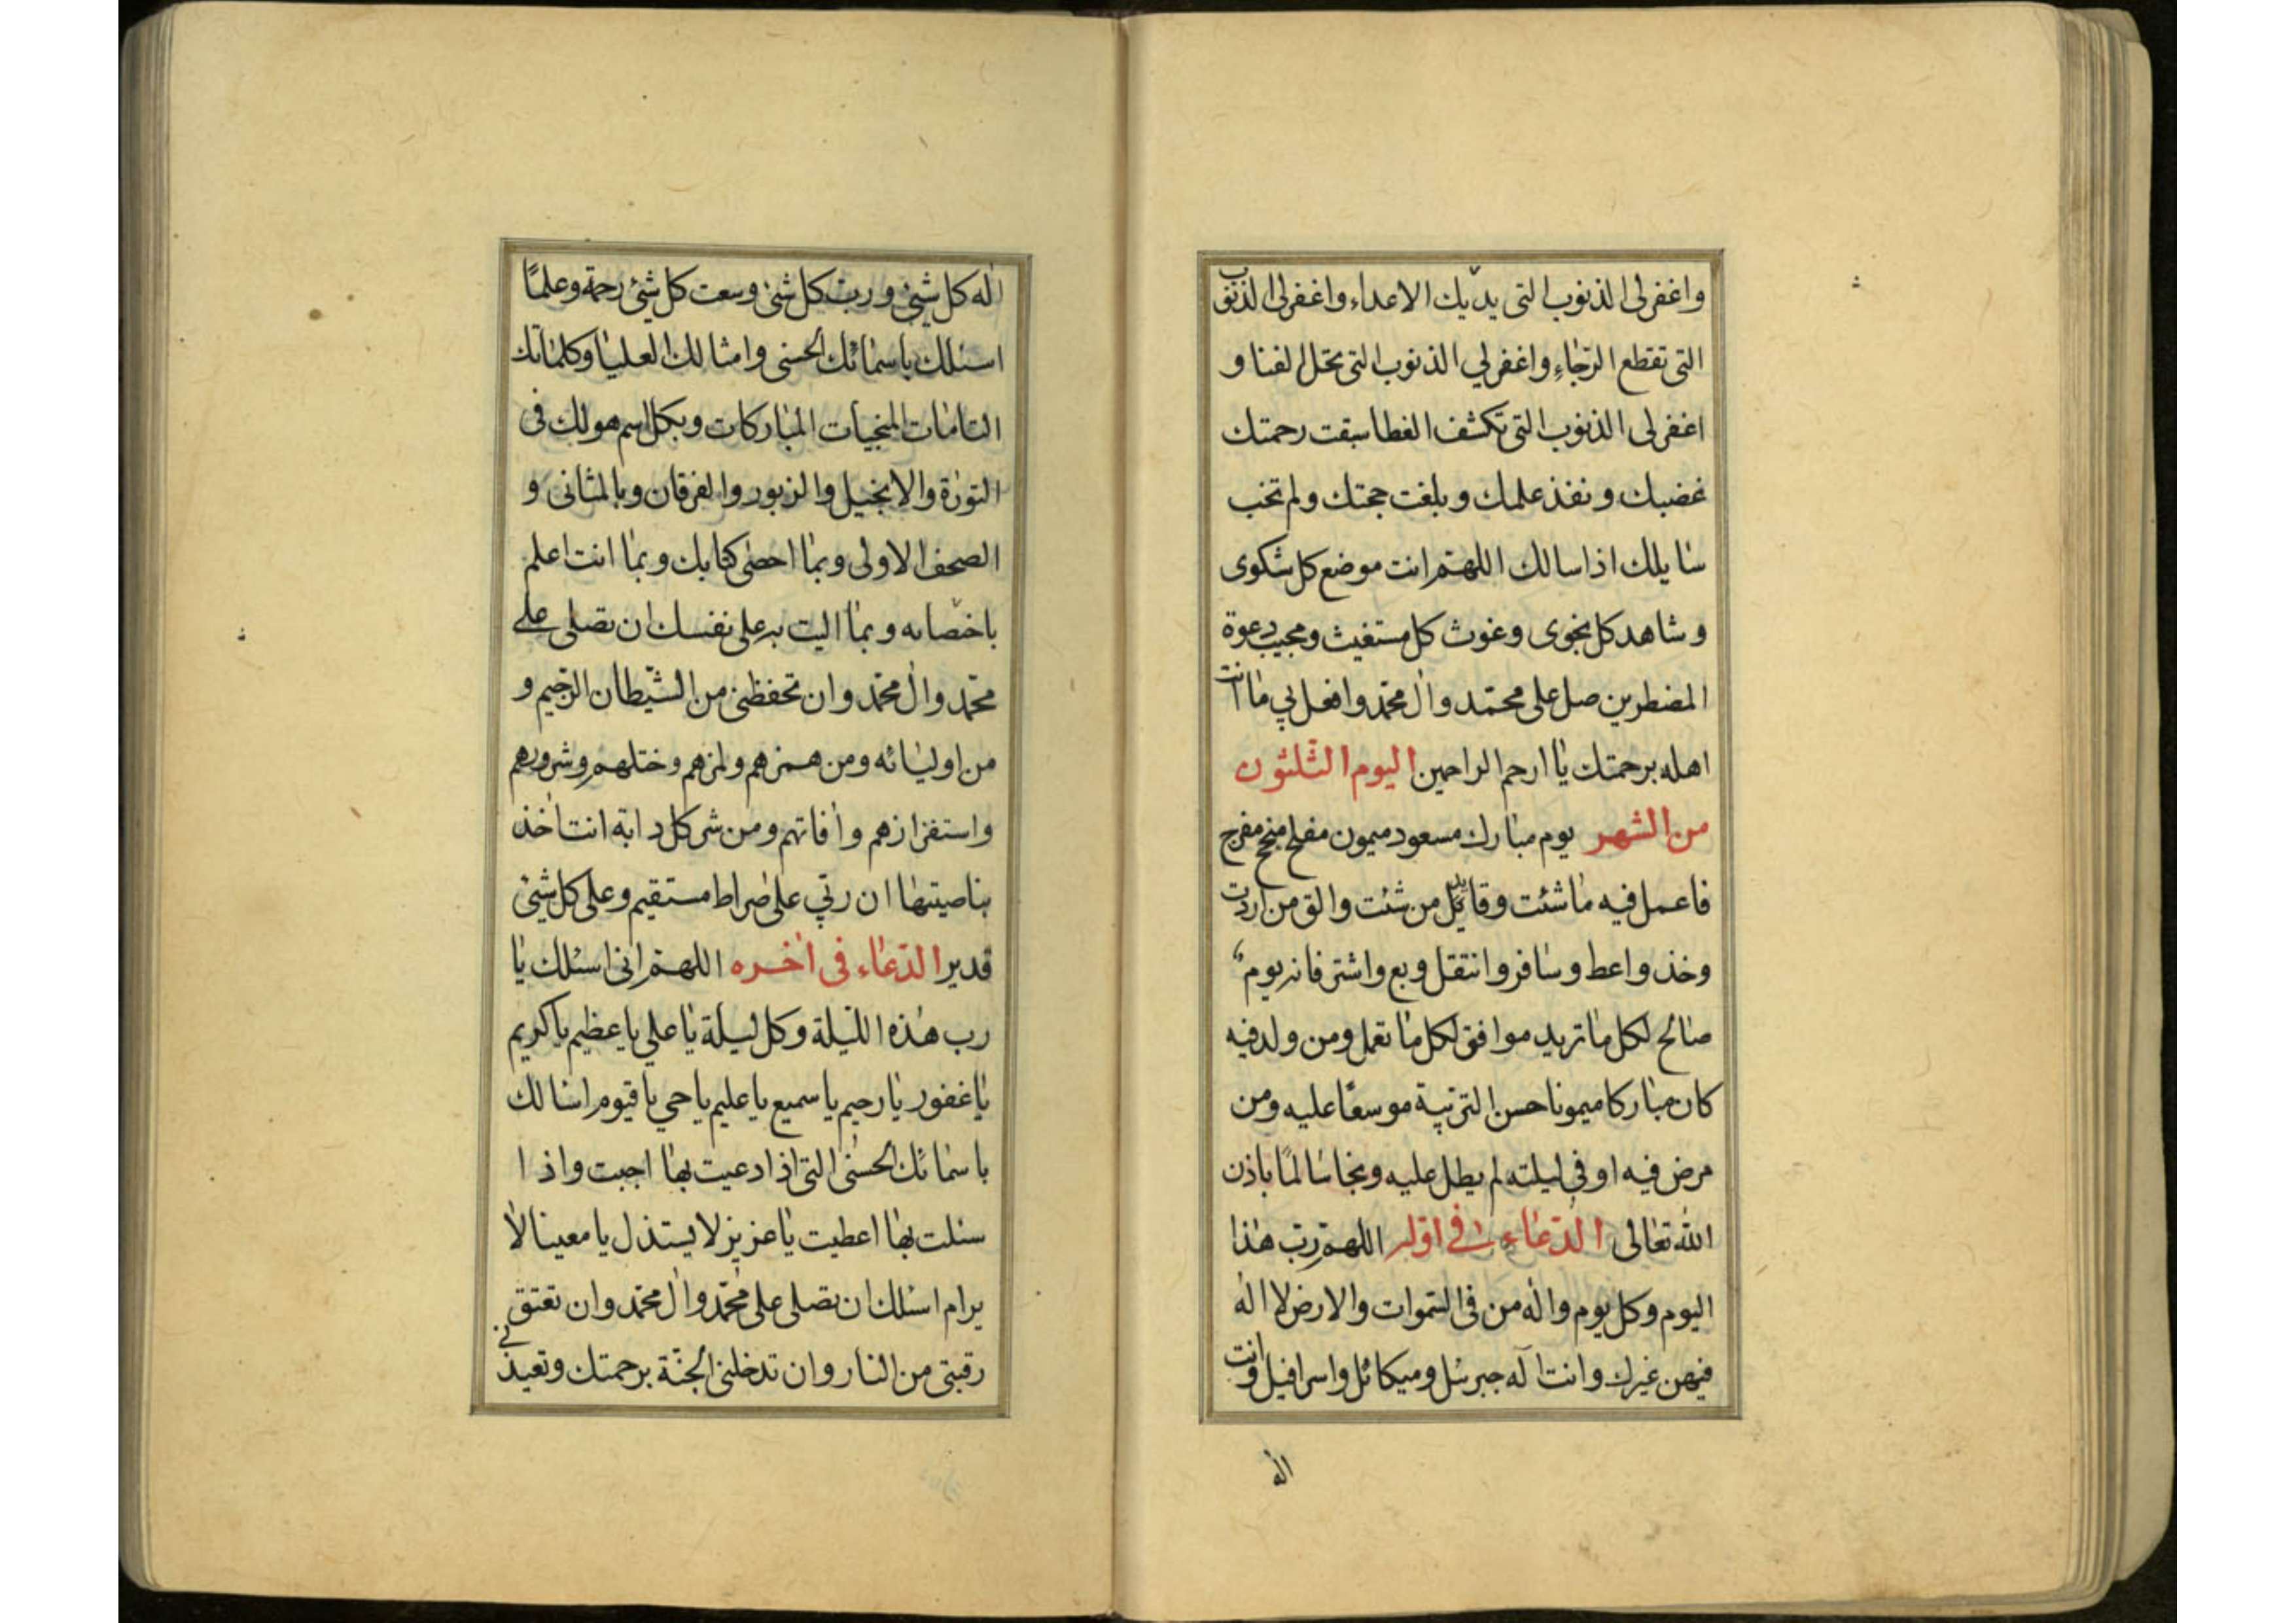 واغفر لی الذنوب التی یدیک الاعداء واغفر لی الذنوب
التی تقطع الرّجٰاءِ واغفر لي الذنوب التی تحل الفنا و
اغفر لی الذنوب التی تکشف الغطا سبقت رحمتك
غضبك و نفذ علمك و بلغت حجتك ولم تخب
سٰایلك اذا سالك اللهم انت موضع کل شکوی
و شاهد کل نجوی و غوث کل مستغیث ومجیب دعوة
المضطرین صل علی محمّد واٰل محمّد وافعل بي مٰا انت
اهله برحمتك یٰا ارحم الراحمین الیوم الثّلثون
من الشهر یوم مبٰارك مسعود میمون مفلح منجح مفرح
فاعمل فیه مٰا شئت وقابل من شئت والق من اردت
وخذ واعط وسٰافر وانتقل وبع واشتر فانه یوم
صٰالح لکل مٰا ترید موافق لکل مٰا تعمل ومن ولد فیه
کان مبٰارکا میمونا حسن التربیة موسعًا علیه ومن
مرض فیه او فی لیلته لم یطل علیه ونجا سٰالمًا باذن
اللّٰه تعٰالی الدّعٰاء فی اوّله اللهم ربّ هٰذا
الیوم وکل یوم واله من فی السّموات والارض لا اله
فیهن غیرك وانت اله جبرئل ومیکائل واسرافیل وانت
اله
اله کل شیئ و ربّ کل شئ وسعت کل شیئ رحمة وعلمًا
اسئلك باسمٰائك الحسنی وامثالك العلیٰا وکلمٰاتك
التامٰات المنجیات المبٰارکات وبکل اسم هو لك فی
التورٰة والانجیل والزبور والفرقان وبالمثانی و
الصحف الاولی وبمٰا احصٰی کتابك وبمٰا انت اعلم
باخصائه وبمٰا الیت به علی نفسك ان تصلی علی
محمّد واٰل محمّد وان تحفظنی من الشّیطان الرّجیم و
من اولیٰائه ومن همزهم ولمزهم وختلهم وشرورهم
واستفزازهم واٰفاتهم ومن شر کل دابة انت اٰخذ
بناصیتهٰا ان ربّي علی صٰراط مستقیم وعلی کل شیئ
قدیر الدّعٰاء فی اٰخره اللهم انی اسئلك یٰا
رب هٰذه اللّیلة وکل لیلة یٰا علي یا عظیم یا کریم
یٰا غفور یٰا رحیم یا سمیع یا علیم یا حي یا قیوم اسٰالك
باسمٰائك الحسنٰی التی اذا دعیت بهٰا اجبت واذا
سئلت بهٰا اعطیت یٰا عزیز لا یستذل یا معینا لٰا
یرام اسئلك ان تصلی علی محمّد واٰل محمّد وان تعتق
رقبتی من النار وان تدخلنی الجنّة برحمتك وتعیذنی